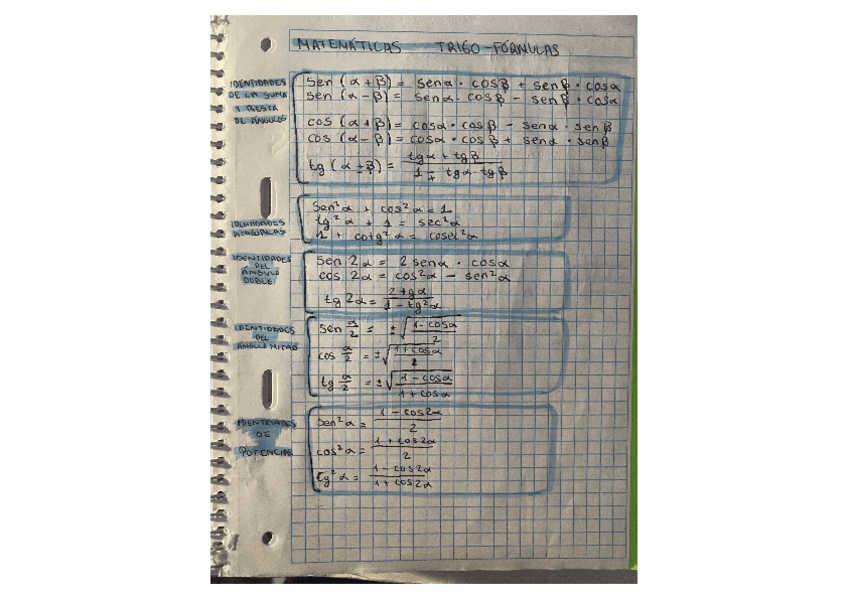 MATEMÁTICAS TRIGO-FÓRMULAS
IDENTIDADES
DE LA SUMA
Y RESTA
DE ÁNGULOS
sen (α + β) = senα · cosβ + senβ · cosα
sen (α - β) = senα · cosβ - senβ · cosα
cos (α + β) = cosα · cosβ - senα · senβ
cos (α - β) = cosα · cosβ + senα · senβ
tg (α ± β) = (tgα + tgβ) / (1 ∓ tgα · tgβ)
IDENTIDADES
PITAGÓRICAS
sen²α + cos²α = 1
tg²α + 1 = sec²α
1 + cotg²α = cosec²α
IDENTIDADES
DEL
ÁNGULO
DOBLE
sen 2α = 2 senα · cosα
cos 2α = cos²α - sen²α
tg 2α = 2tgα / (1 - tg²α)
IDENTIDADES
DEL
ÁNGULO MITAD
sen α/2 = ±√((1 - cosα) / 2)
cos α/2 = ±√((1 + cosα) / 2)
tg α/2 = ±√((1 - cosα) / (1 + cosα))
IDENTIDADES
DE
POTENCIAS
sen²α = (1 - cos2α) / 2
cos²α = (1 + cos2α) / 2
tg²α = (1 - cos2α) / (1 + cos2α)